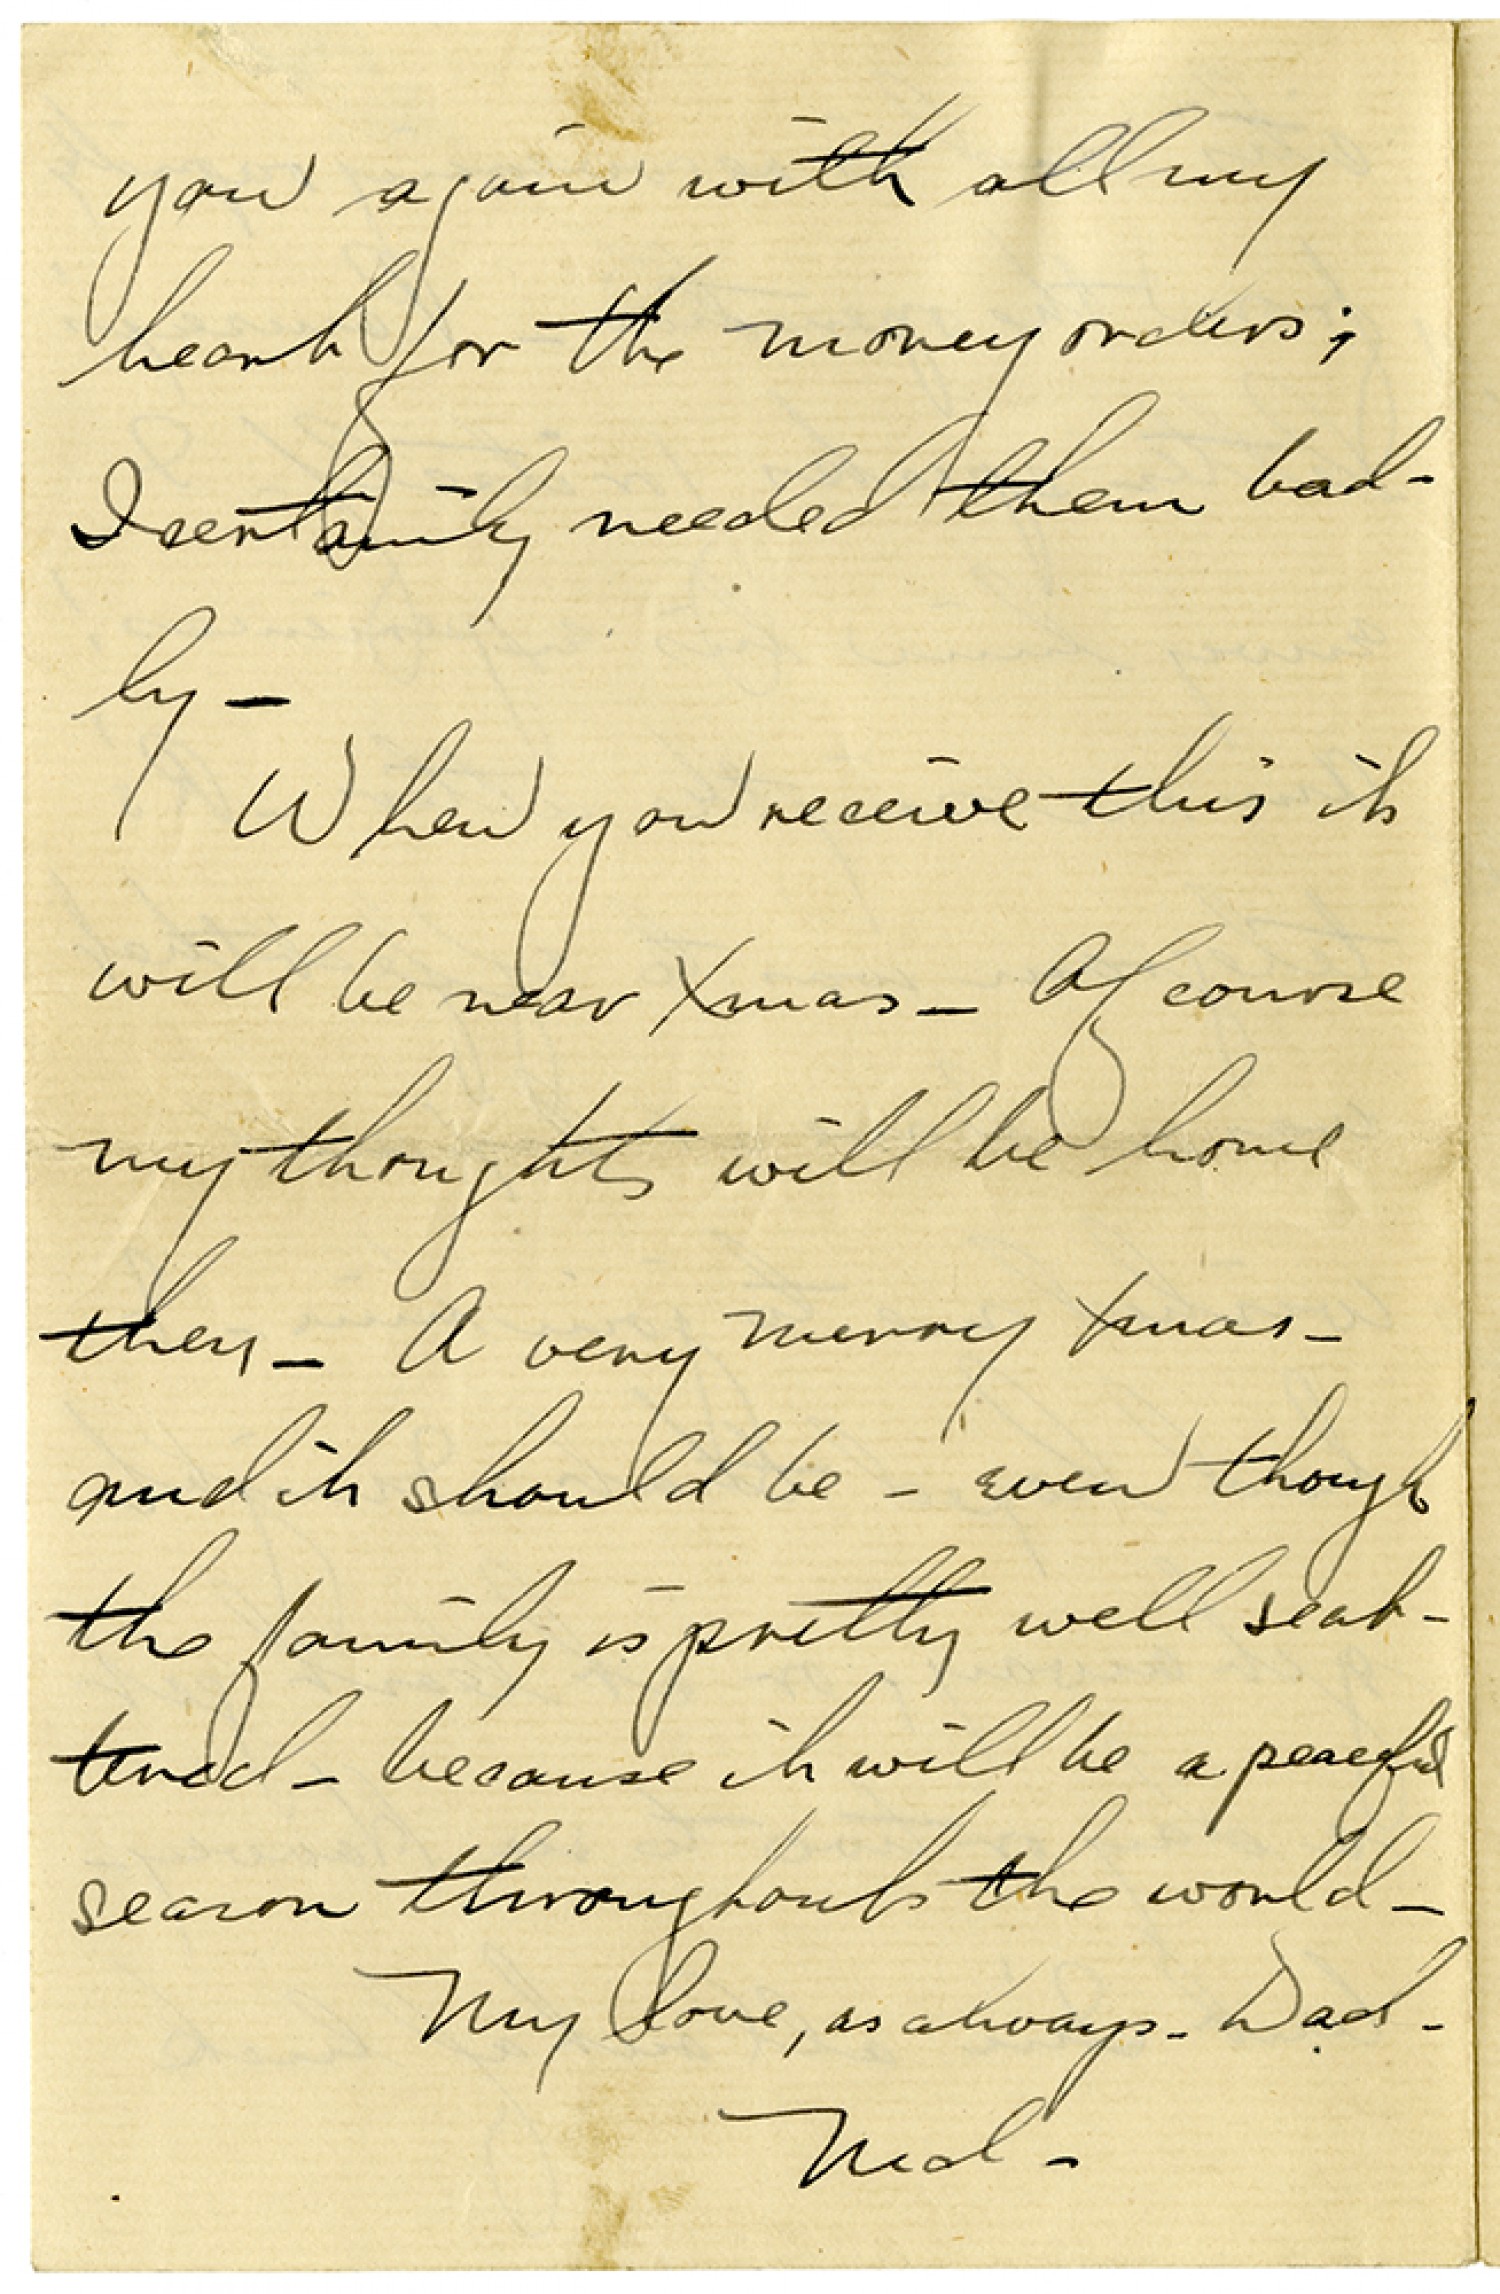 you again with all my
heart for the money orders;
I certainly needed them bad-
ly –
When you receive this it
will be near Xmas – Of course
my thoughts will be home
then – A very merry Xmas –
and it should be – even though
the family is pretty well scat-
tered – because it will be a peaceful
season throughout the world –
My love, as always – Dad –
Ned –